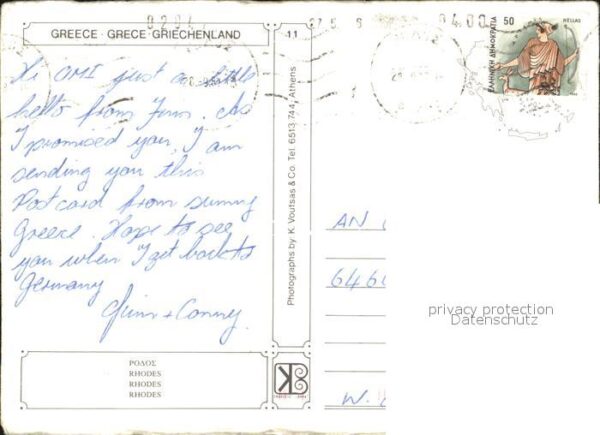 GREECE · GRECE · GRIECHENLAND
11
50
HELLAS
ΕΛΛΗΝΙΚΗ ΔΗΜΟΚΡΑΤΙΑ
0400
Hi OMI just a little
hello from Jim. As
I promised you, I am
sending you this
Postcard from sunny
Greece. Hope to see
you when I get back to
Germany
+ Conny.
Photographs by: K. Voutsas & Co. Tel. 6513.744, Athens
AN
646
W.
privacy protection
Datenschutz
ΡΟΔΟΣ
RHODES
RHODES
RHODES